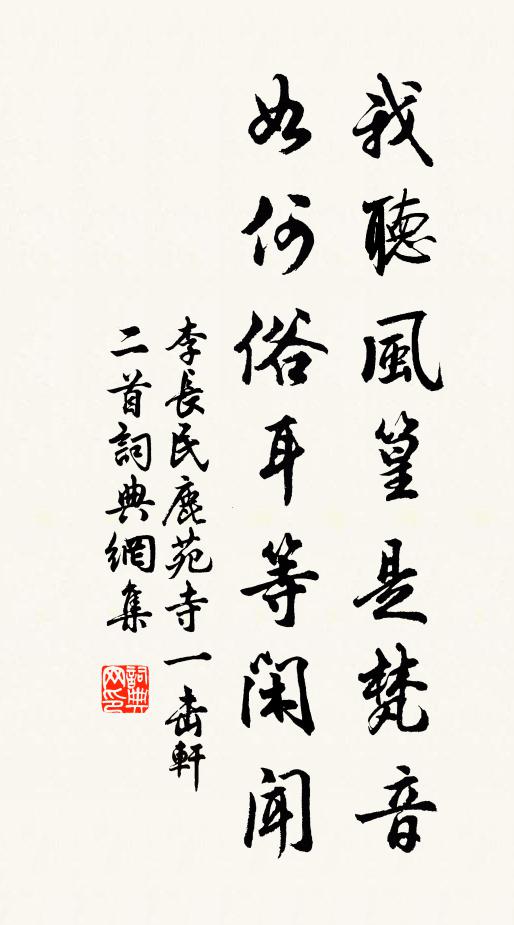 我聽風篁是梵音
如何俗耳等閑聞
李長民鹿苑寺一击軒
二首詞典網集
詞典网印